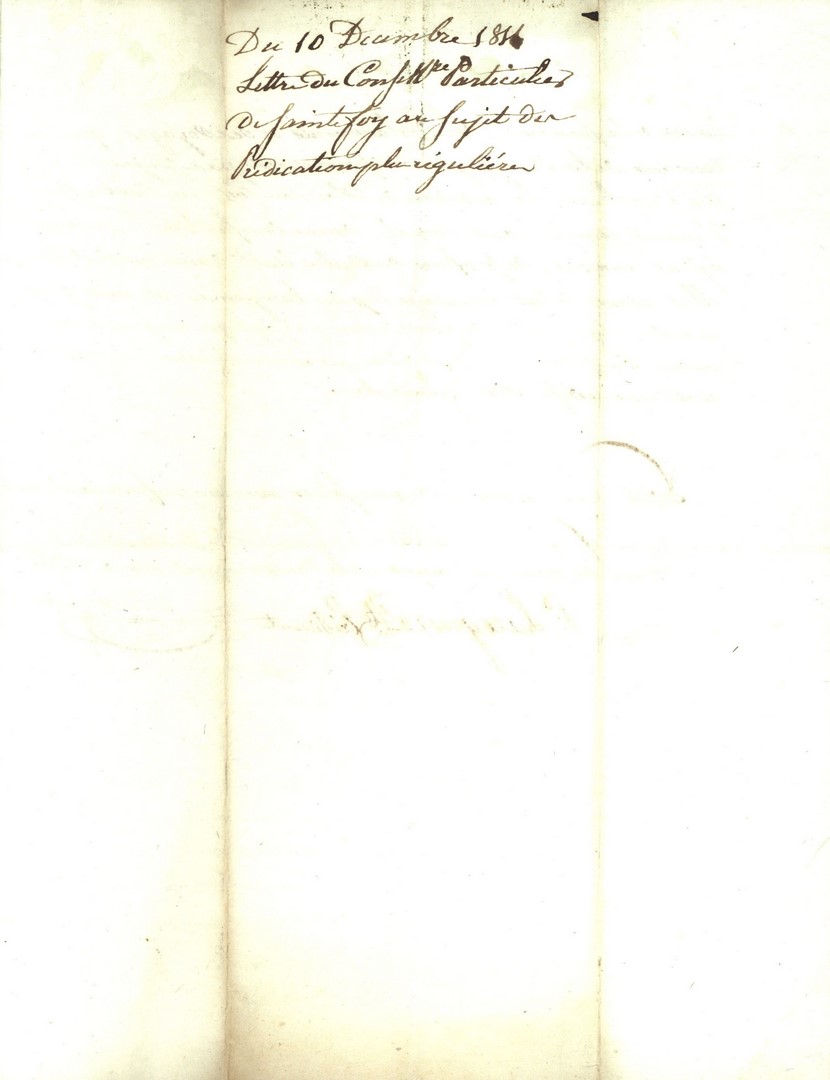 Du 10 Decembre 181
Lettre du Consist^re Particulier
de Saintefoy au Sujet des
Prédication plus régulière